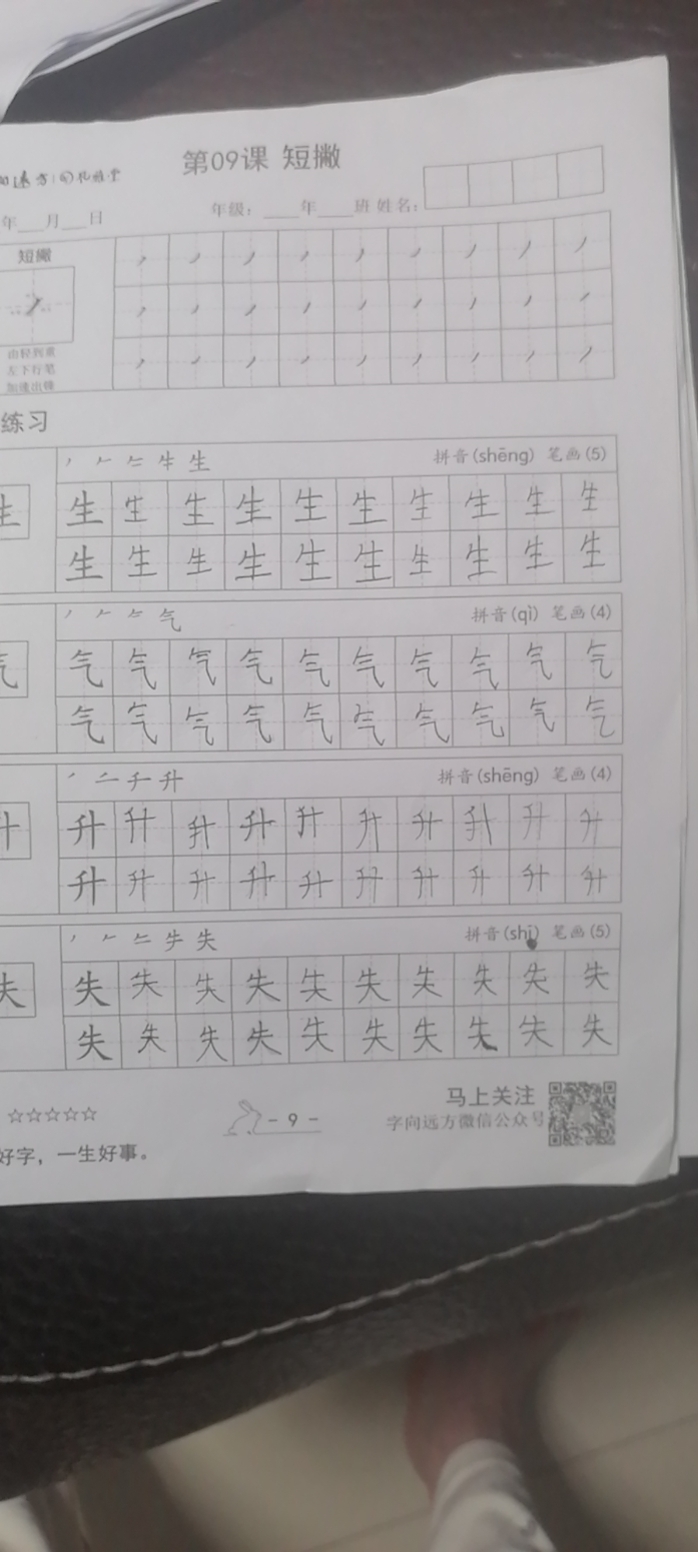 第09课 短撇
年 月 日 年级： 年 班 姓名：
短撇
由轻到重
左下行笔
加速出锋
练习
生 拼音(shēng) 笔画(5)
生 生 生 生 生 生 生 生 生 生 生
生 生 生 生 生 生 生 生 生 生
气 拼音(qì) 笔画(4)
气 气 气 气 气 气 气 气 气 气 气
气 气 气 气 气 气 气 气 气 气
升 拼音(shēng) 笔画(4)
升 升 升 升 升 升 升 升 升 升 升
升 升 升 升 升 升 升 升 升 升
失 拼音(shī) 笔画(5)
失 失 失 失 失 失 失 失 失 失 失
失 失 失 失 失 失 失 失 失 失
☆☆☆☆☆ - 9 - 马上关注
字向远方微信公众号
好字，一生好事。